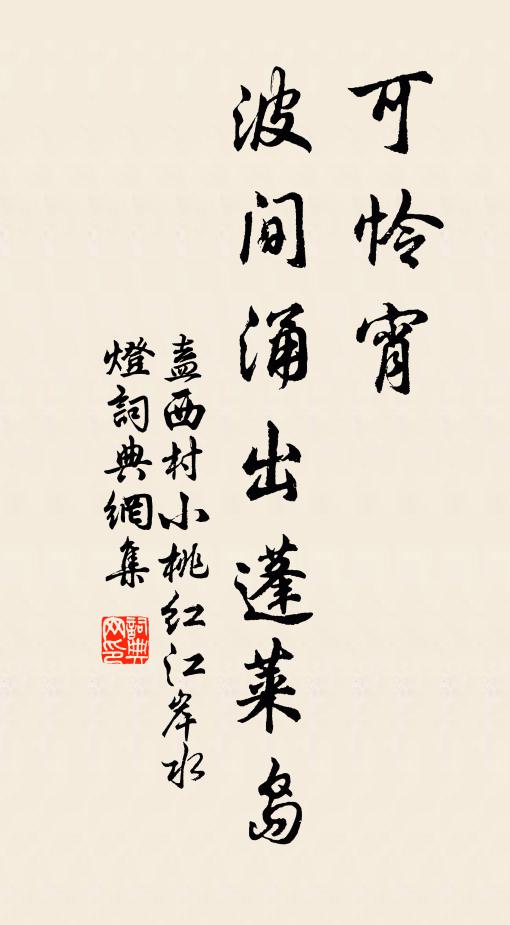 可怜宵
波间涌出蓬莱岛
盍西村小桃红江岸水
燈詞典網集
詞典网印